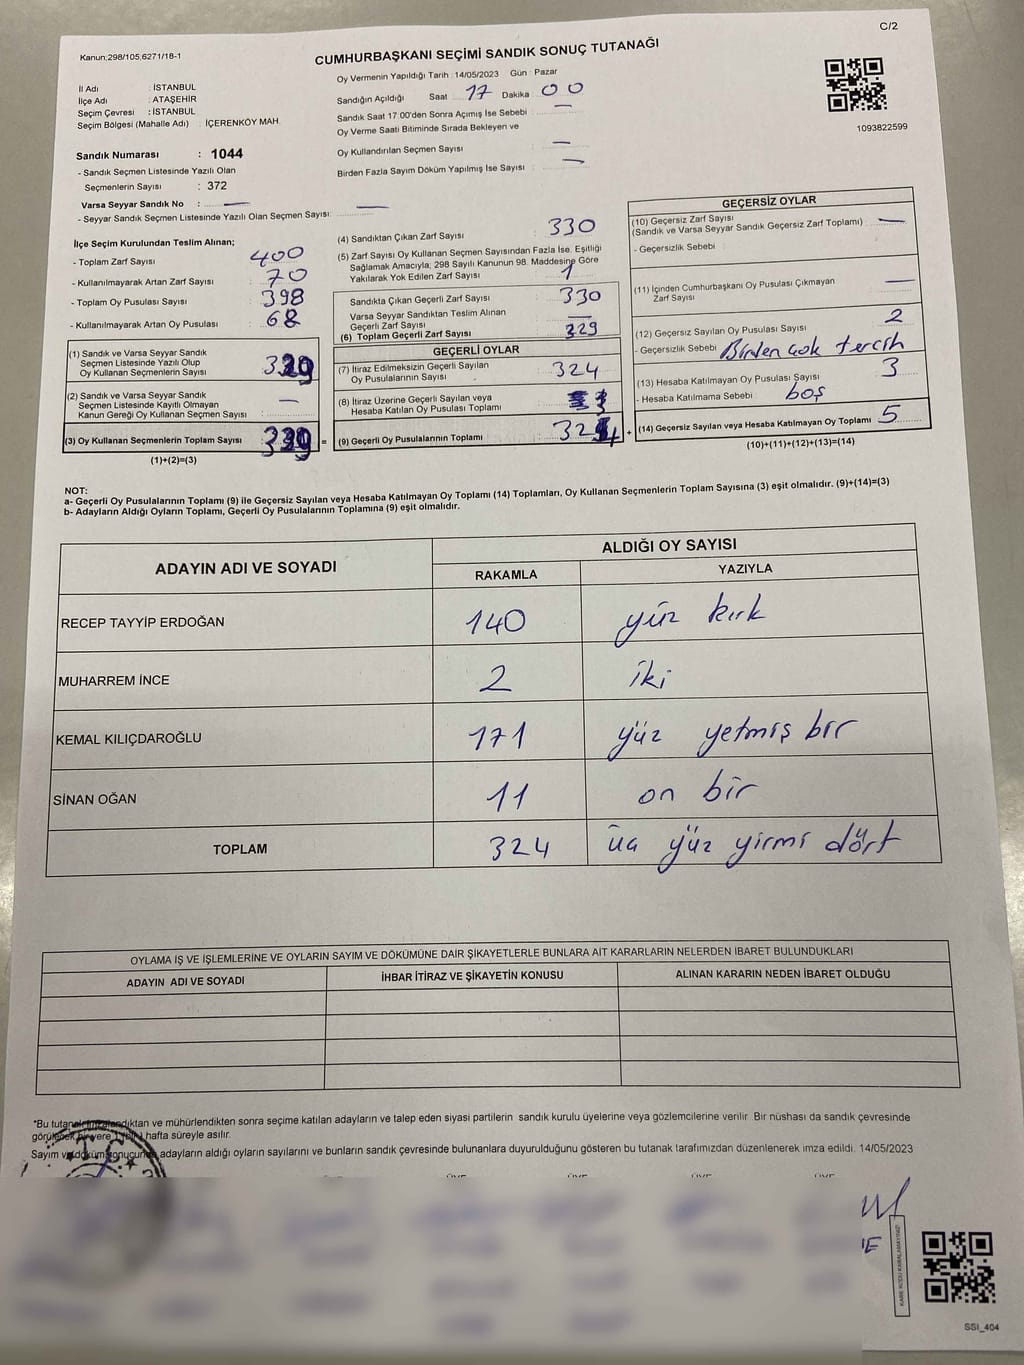 C/2
Kanun;298/105;6271/18-1
CUMHURBAŞKANI SEÇİMİ SANDIK SONUÇ TUTANAĞI
İl Adı : İSTANBUL
İlçe Adı : ATAŞEHİR
Seçim Çevresi : İSTANBUL
Seçim Bölgesi (Mahalle Adı) : İÇERENKÖY MAH.
Sandık Numarası : 1044
- Sandık Seçmen Listesinde Yazılı Olan
Seçmenlerin Sayısı : 372
Varsa Seyyar Sandık No : —
- Seyyar Sandık Seçmen Listesinde Yazılı Olan Seçmen Sayısı: —
Oy Vermenin Yapıldığı Tarih : 14/05/2023 Gün : Pazar
Sandığın Açıldığı Saat 17 Dakika 00
Sandık Saat 17:00'den Sonra Açımış İse Sebebi : —
Oy Verme Saati Bitiminde Sırada Bekleyen ve
Oy Kullandırılan Seçmen Sayısı : —
Birden Fazla Sayım Döküm Yapılmış İse Sayısı : —
1093822599
İlçe Seçim Kurulundan Teslim Alınan;
- Toplam Zarf Sayısı : 400
- Kullanılmayarak Artan Zarf Sayısı : 70
- Toplam Oy Pusulası Sayısı : 398
- Kullanılmayarak Artan Oy Pusulası : 68
(1) Sandık ve Varsa Seyyar Sandık
Seçmen Listesinde Yazılı Olup
Oy Kullanan Seçmenlerin Sayısı : 329
(2) Sandık ve Varsa Seyyar Sandık
Seçmen Listesinde Kayıtlı Olmayan
Kanun Gereği Oy Kullanan Seçmen Sayısı : —
(3) Oy Kullanan Seçmenlerin Toplam Sayısı : 329 =
(1)+(2)=(3)
(4) Sandıktan Çıkan Zarf Sayısı : 330
(5) Zarf Sayısı Oy Kullanan Seçmen Sayısından Fazla İse, Eşitliği
Sağlamak Amacıyla; 298 Sayılı Kanunun 98. Maddesine Göre
Yakılarak Yok Edilen Zarf Sayısı : 1
Sandıkta Çıkan Geçerli Zarf Sayısı : 330
Varsa Seyyar Sandıktan Teslim Alınan
Geçerli Zarf Sayısı : —
(6) Toplam Geçerli Zarf Sayısı : 329
GEÇERLİ OYLAR
(7) İtiraz Edilmeksizin Geçerli Sayılan
Oy Pusulalarının Sayısı : 324
(8) İtiraz Üzerine Geçerli Sayılan veya
Hesaba Katılan Oy Pusulası Toplamı :
(9) Geçerli Oy Pusulalarının Toplamı : 324 +
GEÇERSİZ OYLAR
(10) Geçersiz Zarf Sayısı
(Sandık ve Varsa Seyyar Sandık Geçersiz Zarf Toplamı) : —
- Geçersizlik Sebebi :
(11) İçinden Cumhurbaşkanı Oy Pusulası Çıkmayan
Zarf Sayısı : —
(12) Geçersiz Sayılan Oy Pusulası Sayısı : 2
- Geçersizlik Sebebi Birden çok tercih
(13) Hesaba Katılmayan Oy Pusulası Sayısı : 3
- Hesaba Katılmama Sebebi : boş
(14) Geçersiz Sayılan veya Hesaba Katılmayan Oy Toplamı : 5
(10)+(11)+(12)+(13)=(14)
NOT:
a- Geçerli Oy Pusulalarının Toplamı (9) ile Geçersiz Sayılan veya Hesaba Katılmayan Oy Toplamı (14) Toplamları, Oy Kullanan Seçmenlerin Toplam Sayısına (3) eşit olmalıdır. (9)+(14)=(3)
b- Adayların Aldığı Oyların Toplamı, Geçerli Oy Pusulalarının Toplamına (9) eşit olmalıdır.
ADAYIN ADI VE SOYADI
ALDIĞI OY SAYISI
RAKAMLA YAZIYLA
RECEP TAYYİP ERDOĞAN 140 yüz kırk
MUHARREM İNCE 2 iki
KEMAL KILIÇDAROĞLU 171 yüz yetmiş bir
SİNAN OĞAN 11 on bir
TOPLAM 324 üç yüz yirmi dört
OYLAMA İŞ VE İŞLEMLERİNE VE OYLARIN SAYIM VE DÖKÜMÜNE DAİR ŞİKAYETLERLE BUNLARA AİT KARARLARIN NELERDEN İBARET BULUNDUKLARI
ADAYIN ADI VE SOYADI İHBAR İTİRAZ VE ŞİKAYETİN KONUSU ALINAN KARARIN NEDEN İBARET OLDUĞU
*Bu tutanak imzalandıktan ve mühürlendikten sonra seçime katılan adayların ve talep eden siyasi partilerin sandık kurulu üyelerine veya gözlemcilerine verilir. Bir nüshası da sandık çevresinde
görülecek bir yere 1 (bir) hafta süreyle asılır.
Sayım ve döküm sonucunda adayların aldığı oyların sayılarını ve bunların sandık çevresinde bulunanlara duyurulduğunu gösteren bu tutanak tarafımızdan düzenlenerek imza edildi. 14/05/2023
T.C.
KARE KODU KARALAMAYINIZ!
SSI_404